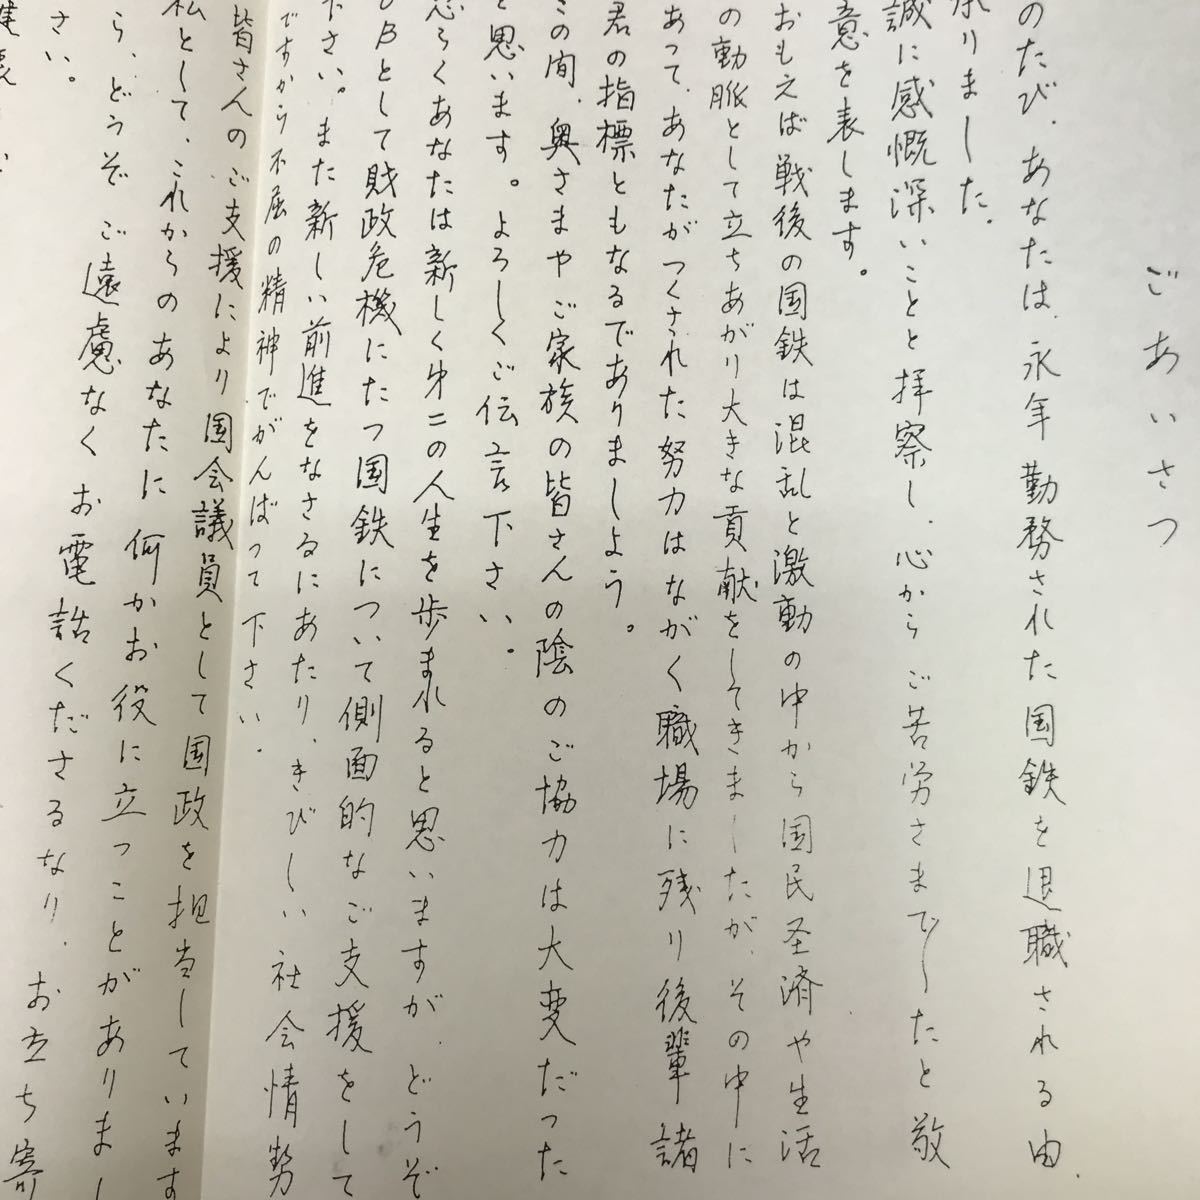 ごあいさつ
のたび、あなたは、永年勤務された国鉄を退職される由、
承りました。
誠に感慨深いことと拝察し、心からご苦労さまでしたと敬
意を表します。
おもえば戦後の国鉄は混乱と激動の中から国民圣済や生活
の動脈として立ちあがり大きな貢献をしてきましたが、その中に
あって、あなたがつくされた努力はながく職場に残り後輩諸
君の指標ともなるでありましよう。
この間、奥さまやご家族の皆さんの陰のご協力は大変だった
と思います。よろしくご伝言下さい。
恐らくあなたは新しく㐧二の人生を歩まれると思いますが、どうぞ
OBとして財政危機にたつ国鉄について側面的なご支援をして
下さい。また新しい前進をなさるにあたり、きびしい社会情勢
ですから不屈の精神でがんばって下さい。
皆さんのご支援により国会議員として国政を担当しています
私として、これからのあなたに何かお役に立つことがありまし
ら、どうぞご遠慮なくお電話くださるなり、お立ち寄
さい。